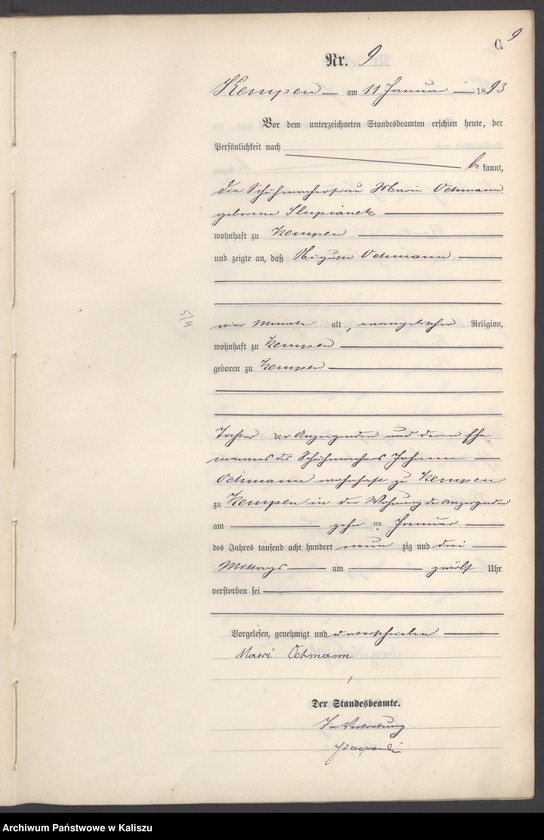 9
C.
Nr. 9
Kempen am 11 Januar 1893
Vor dem unterzeichneten Standesbeamten erschien heute, der
Persönlichkeit nach
be kannt,
die Schuhmacherfrau Marie Ochmann
geborene Slupianek
wohnhaft zu Kempen
und zeigte an, daß Auguste Ochmann
vier Monate alt, evangelischer Religion,
wohnhaft zu Kempen
geboren zu Kempen
Tochter der Anzeigenden und deren Ehe-
mannes des Schuhmachers Johann
Ochmann wohnhaft zu Kempen
zu Kempen in der Wohnung der Anzeigenden
am zehn ten Januar
des Jahres tausend acht hundert neun zig und drei
Mittags um zwölf Uhr
verstorben sei
Vorgelesen, genehmigt und unterschrieben
Marie Ochmann
Der Standesbeamte.
In Vertretung
Archiwum Państwowe w Kaliszu